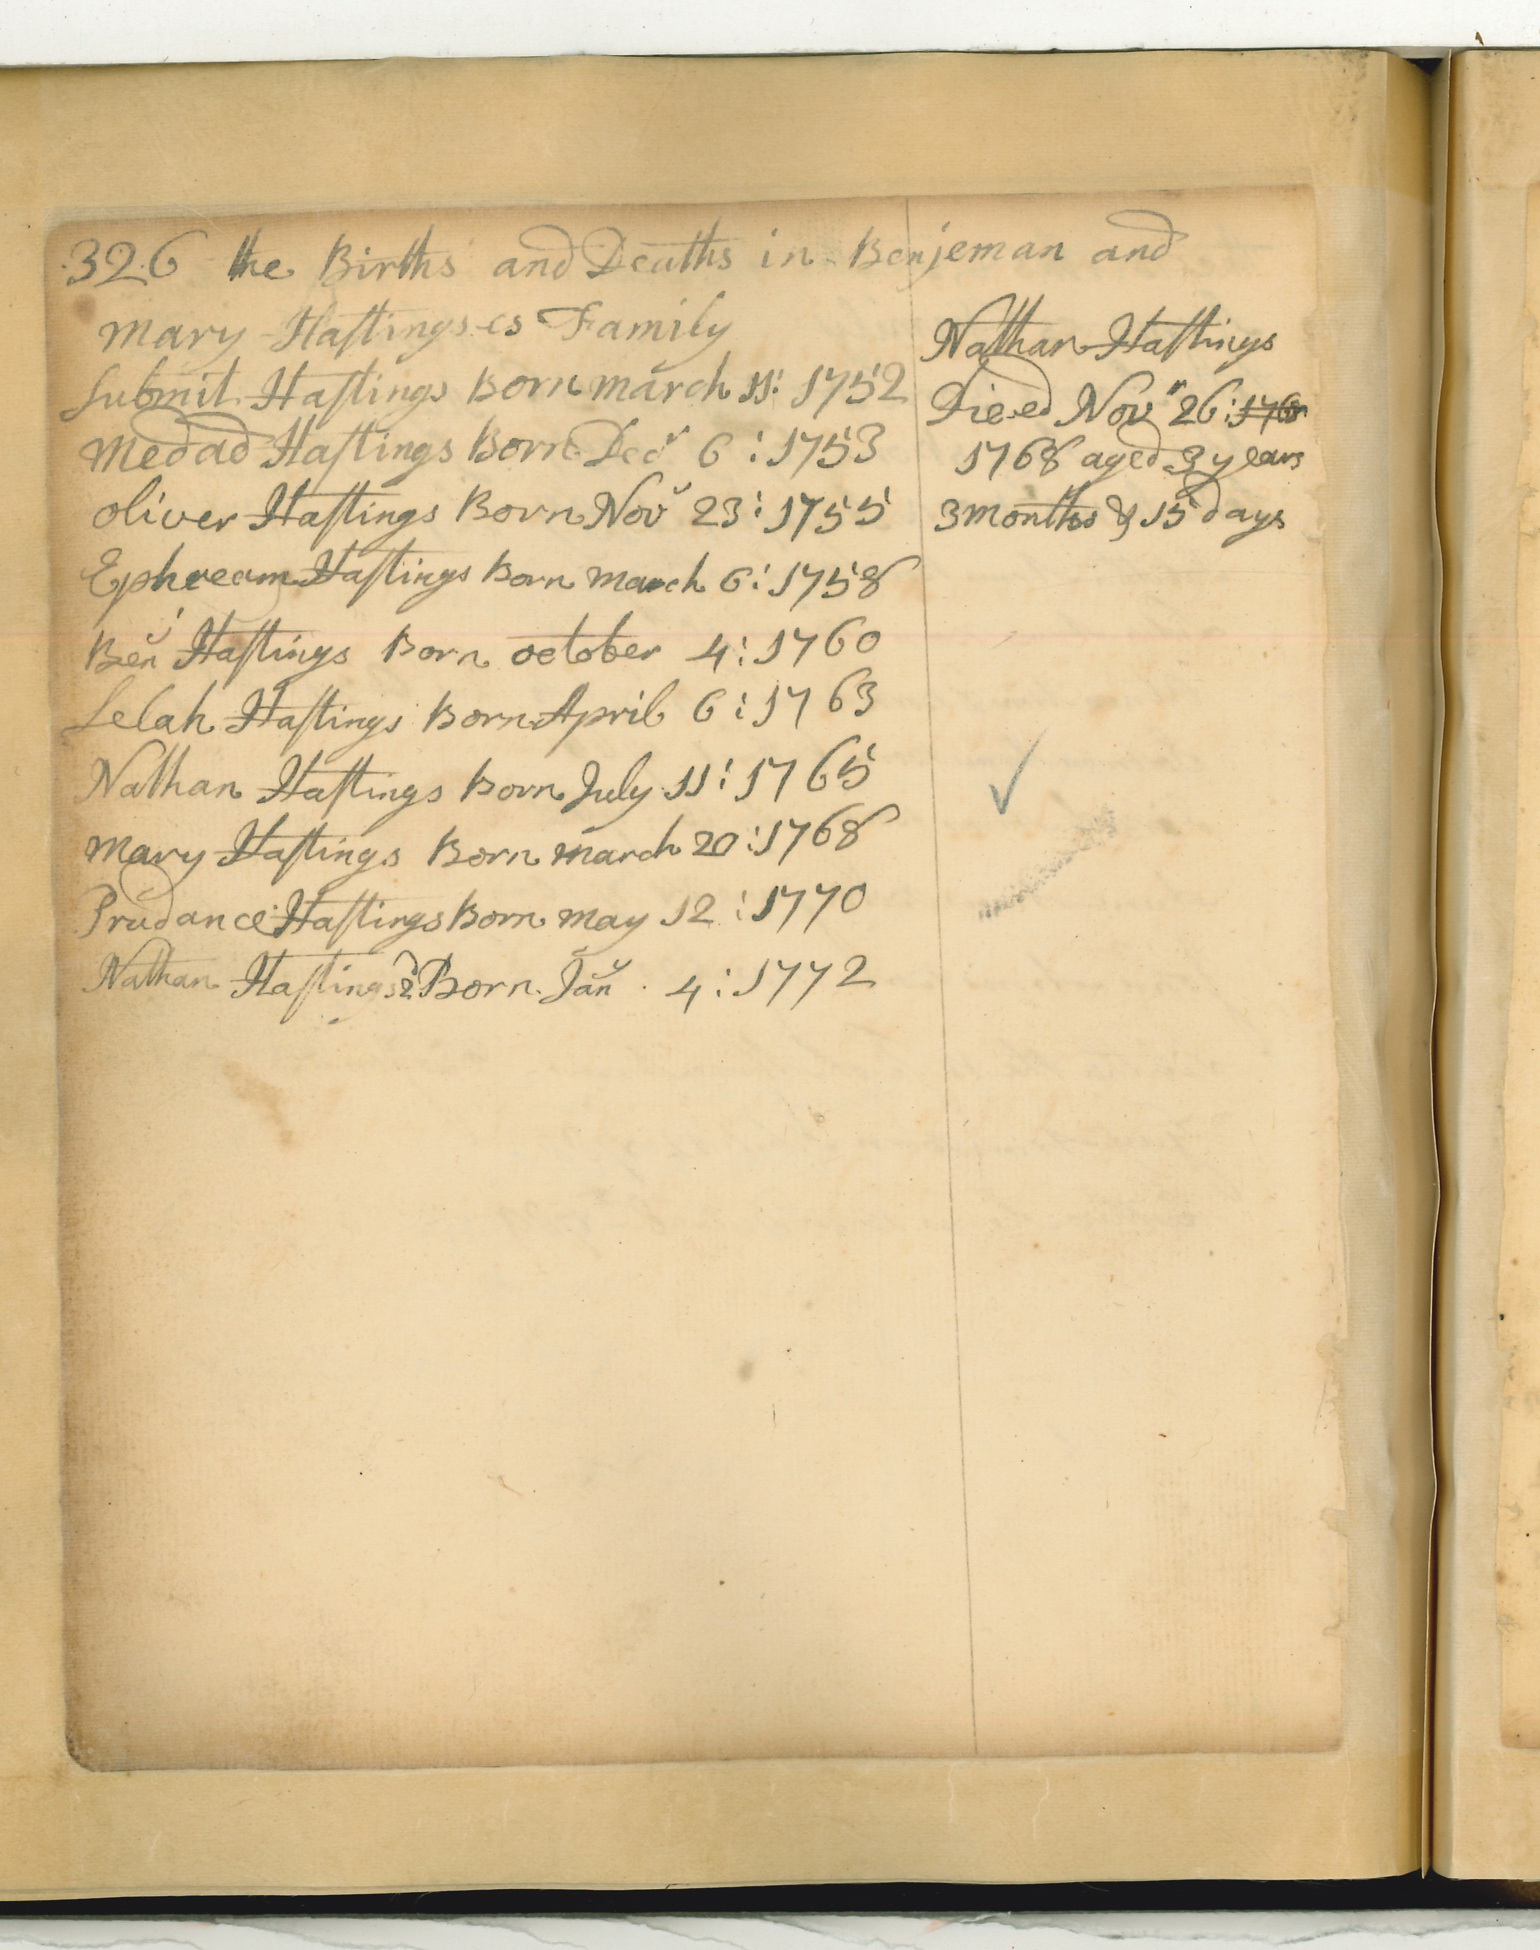 326 the Births and Deaths in Benjeman and
Mary Haſtings.es Family
Submit Haſtings Born march 11: 1752
Medad Haſtings Born Decr 6: 1753
oliver Haſtings Born Novr 23: 1755
Ephream Haſtings Born march 6: 1758
Ben Haſtings Born october 4: 1760
Lelah Haſtings Born April 6: 1763
Nathan Haſtings Born July 11: 1765
Mary Haſtings Born march 20: 1768
Prudance Haſtings Born may 12: 1770
Nathan Haſtings 2d Born Jan 4: 1772
Nathan Haſtings
Dieed Novr 26: 1768
1768 aged 3 years
3 months & 15 days